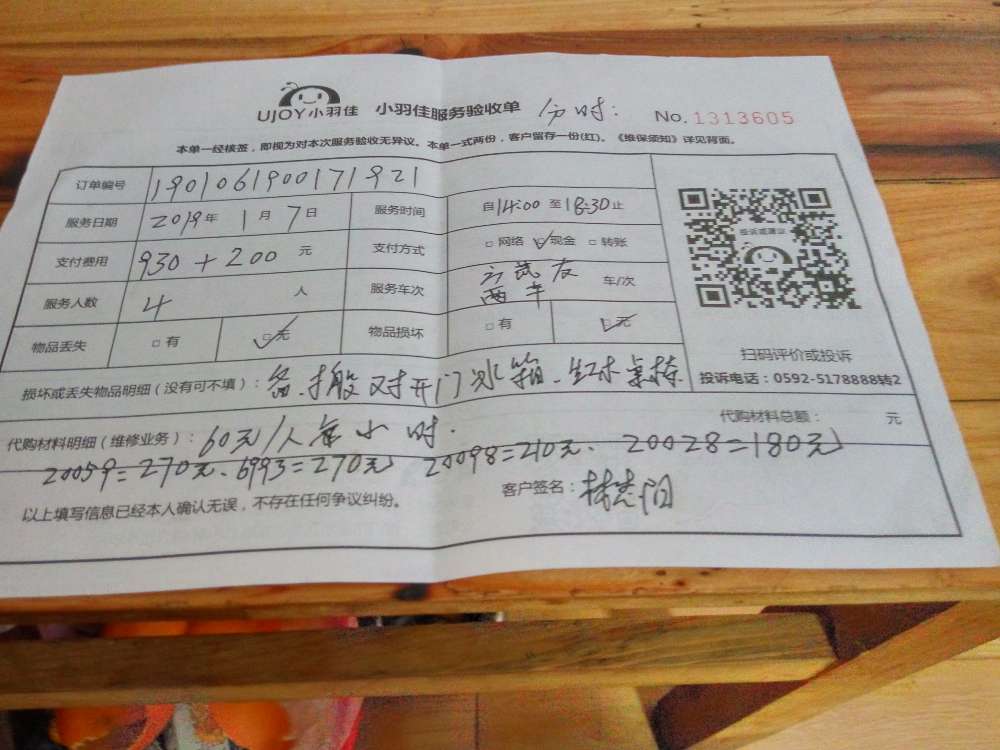 UJOY小羽佳 小羽佳服务验收单 分时: No.1313605
本单一经核签，即视为对本次服务验收无异议。本单一式两份，客户留存一份(红)。《维保须知》详见背面。
订单编号 1901061900171921
服务日期 2019年1月7日 服务时间 自14:00至18:30止
支付费用 930+200 元 支付方式 □网络 ☑现金 □转账
服务人数 4 人 服务车次 两车 车/次
物品丢失 □有 ☑无 物品损坏 □有 ☑无
投诉或建议
扫码评价或投诉
投诉电话：0592-5178888转2
损坏或丢失物品明细（没有可不填）：搬对开门冰箱、红木桌
代购材料明细（维修业务）：60元/人每小时. 代购材料总额： 元
20059=270元、6993=270元 20098=210元、20028=180元
以上填写信息已经本人确认无误，不存在任何争议纠纷。 客户签名：林志阳